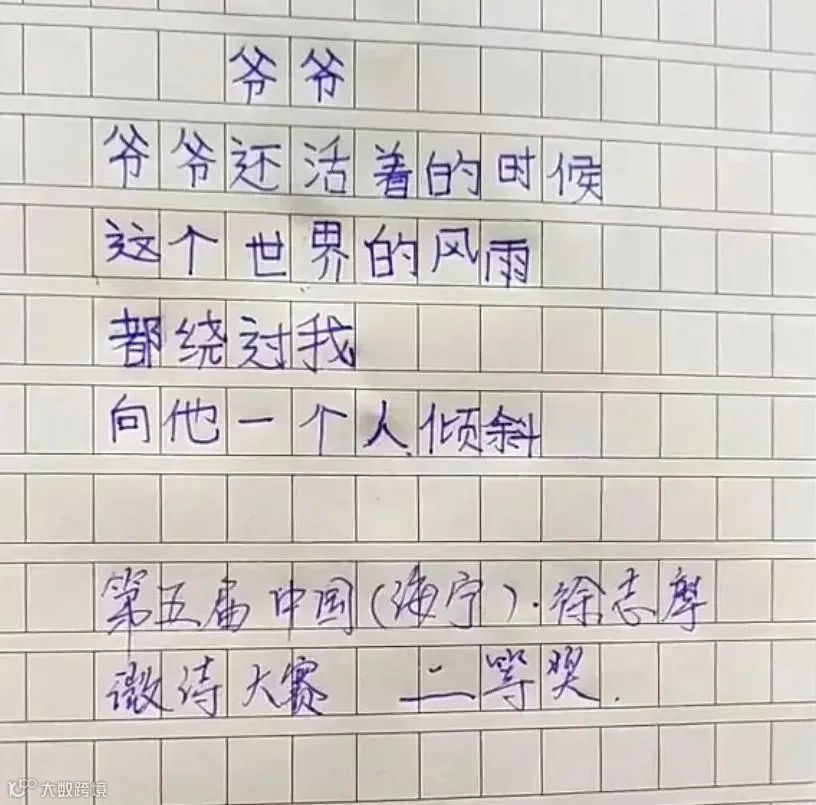 爷爷
爷爷还活着的时候
这个世界的风雨
都绕过我
向他一个人倾斜
第五届中国(海宁)·徐志摩
微诗大赛 二等奖.
大数跨境